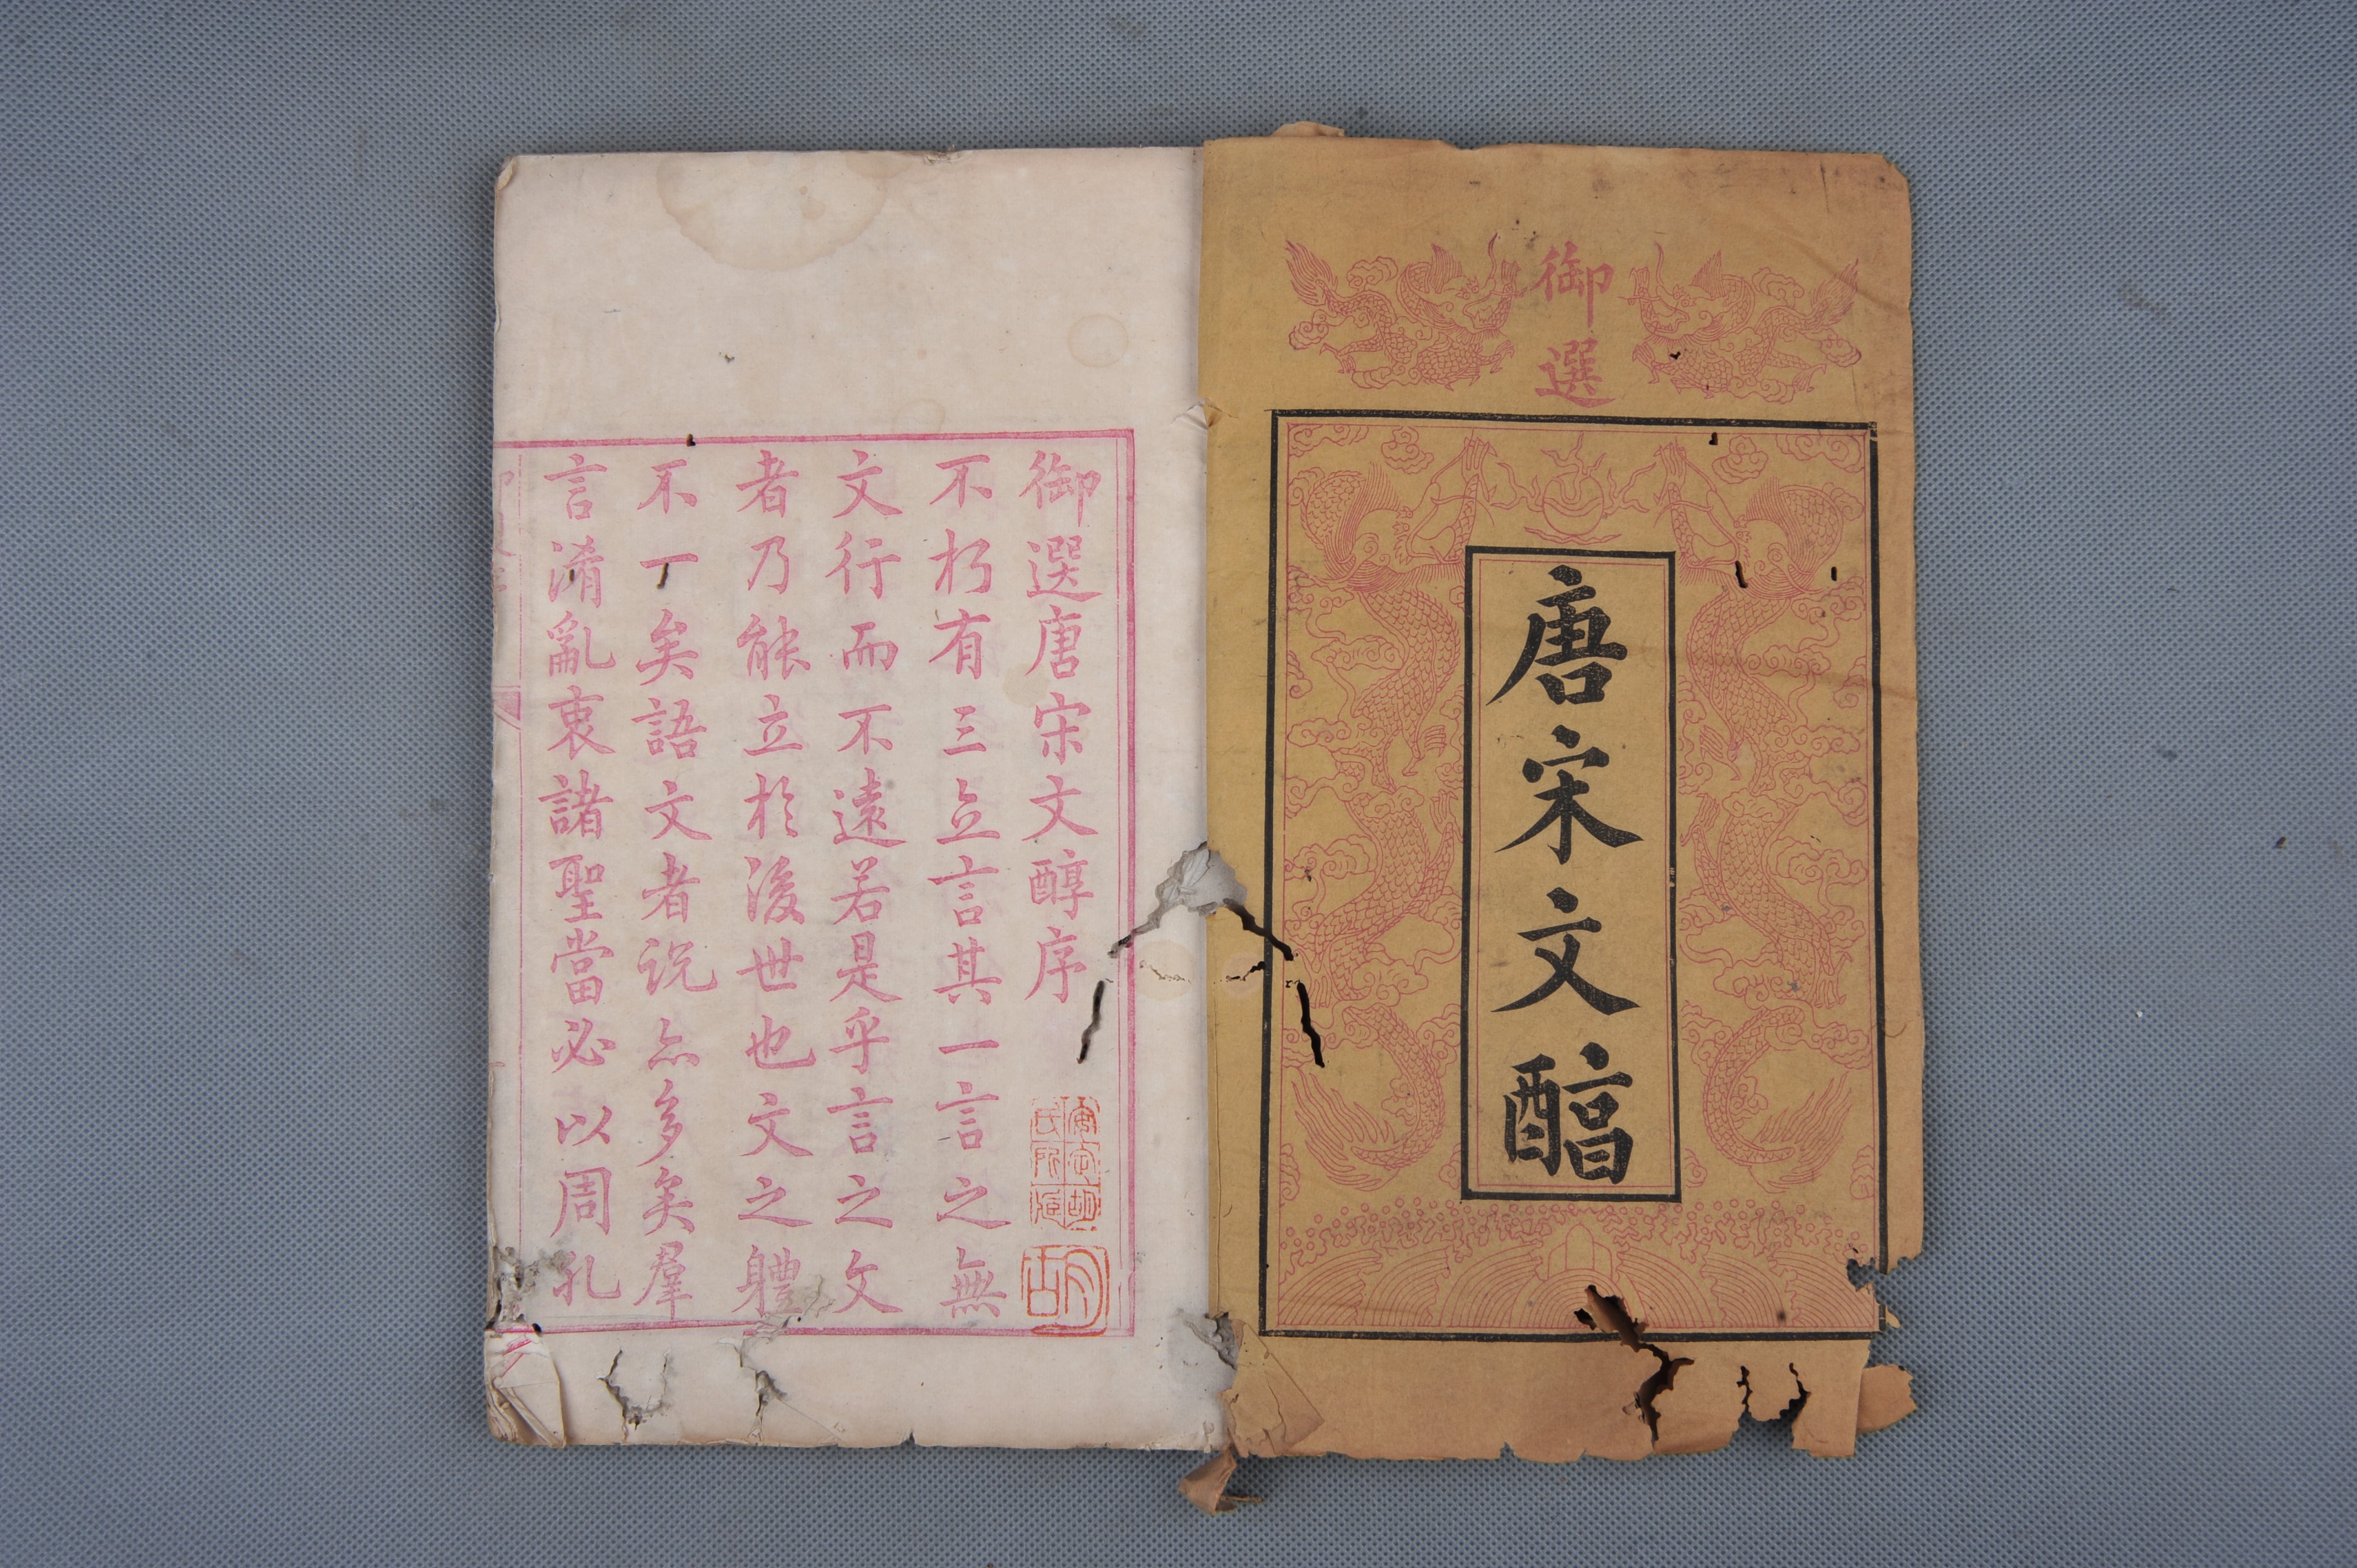 御選
唐宋文醇
御選唐宋文醇序
不朽有三立言其一言之無
文行而不遠若是乎言之文
者乃能立於後世也文之體
不一矣語文者说亦多矣羣
言淆亂衷諸聖當必以周孔